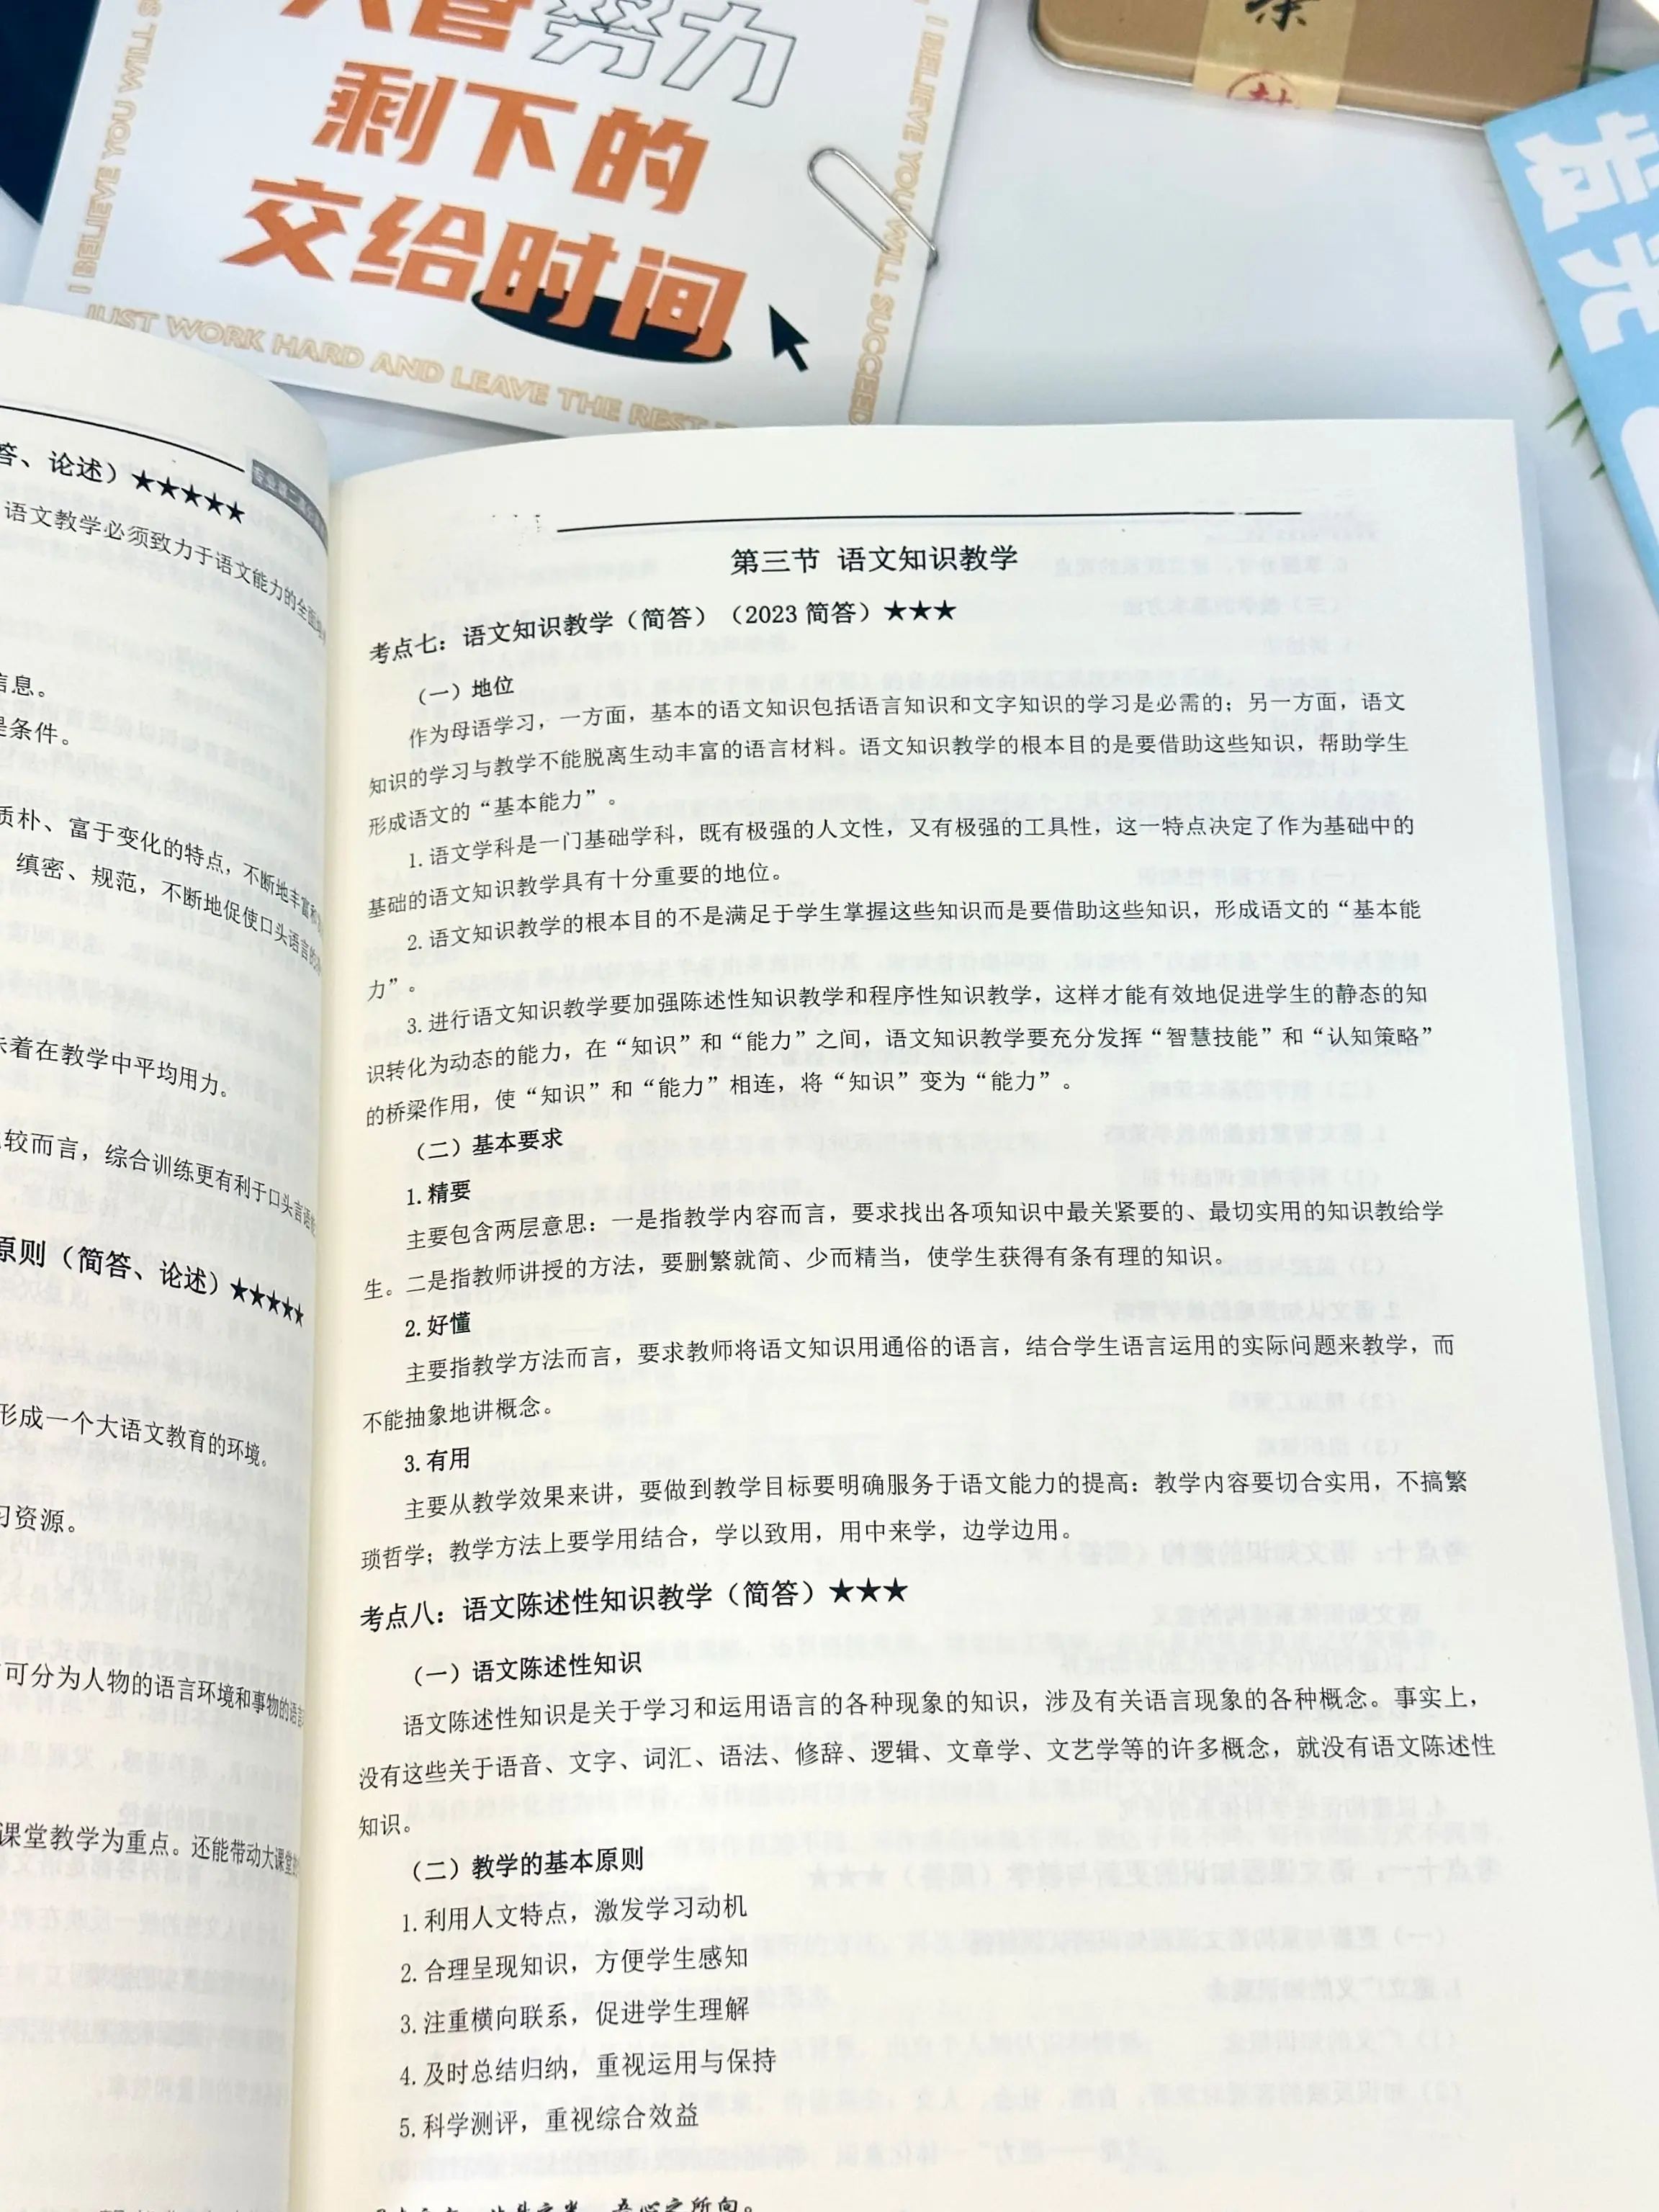 努力
剩下的
交给时间
I BELIEVE YOU WILL S
I BELIEVE YOU WILL SUCCEED
JUST WORK HARD AND LEAVE THE REST
茶
答、论述）★★★★★
语文教学必须致力于语文能力的全面
信息。
是条件。
质朴、富于变化的特点，不断地丰富和
缜密、规范，不断地促使口头语言的
味着在教学中平均用力。
较而言，综合训练更有利于口头言语
原则（简答、论述）★★★★★
形成一个大语文教育的环境。
习资源。
可分为人物的语言环境和事物的语言
课堂教学为重点。还能带动大课堂
第三节 语文知识教学
考点七：语文知识教学（简答）（2023 简答）★★★
（一）地位
作为母语学习，一方面，基本的语文知识包括语言知识和文字知识的学习是必需的；另一方面，语文
知识的学习与教学不能脱离生动丰富的语言材料。语文知识教学的根本目的是要借助这些知识，帮助学生
形成语文的“基本能力”。
1.语文学科是一门基础学科，既有极强的人文性，又有极强的工具性，这一特点决定了作为基础中的
基础的语文知识教学具有十分重要的地位。
2.语文知识教学的根本目的不是满足于学生掌握这些知识而是要借助这些知识，形成语文的“基本能
力”。
3.进行语文知识教学要加强陈述性知识教学和程序性知识教学，这样才能有效地促进学生的静态的知
识转化为动态的能力，在“知识”和“能力”之间，语文知识教学要充分发挥“智慧技能”和“认知策略”
的桥梁作用，使“知识”和“能力”相连，将“知识”变为“能力”。
（二）基本要求
1.精要
主要包含两层意思：一是指教学内容而言，要求找出各项知识中最关紧要的、最切实用的知识教给学
生。二是指教师讲授的方法，要删繁就简、少而精当，使学生获得有条有理的知识。
2.好懂
主要指教学方法而言，要求教师将语文知识用通俗的语言，结合学生语言运用的实际问题来教学，而
不能抽象地讲概念。
3.有用
主要从教学效果来讲，要做到教学目标要明确服务于语文能力的提高：教学内容要切合实用，不搞繁
琐哲学；教学方法上要学用结合，学以致用，用中来学，边学边用。
考点八：语文陈述性知识教学（简答）★★★
（一）语文陈述性知识
语文陈述性知识是关于学习和运用语言的各种现象的知识，涉及有关语言现象的各种概念。事实上，
没有这些关于语音、文字、词汇、语法、修辞、逻辑、文章学、文艺学等的许多概念，就没有语文陈述性
知识。
（二）教学的基本原则
1.利用人文特点，激发学习动机
2.合理呈现知识，方便学生感知
3.注重横向联系，促进学生理解
4.及时总结归纳，重视运用与保持
5.科学测评，重视综合效益